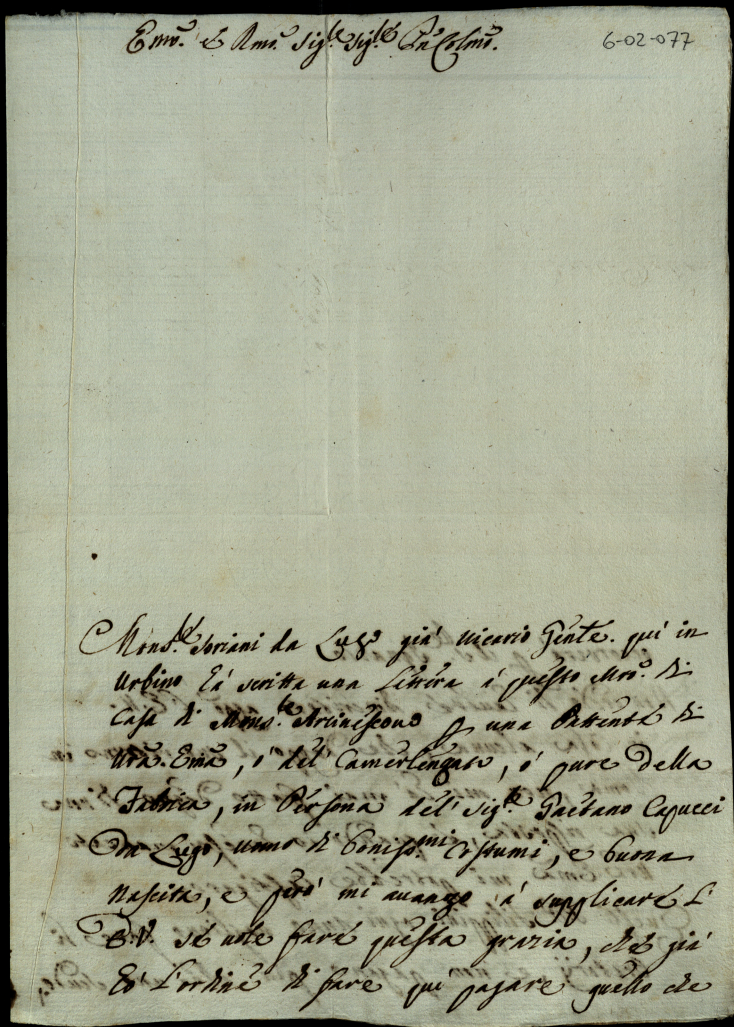 Emo. et Rmo. Sig.re Sig.re Pn Colmo.
6-02-077
Mons.re Soriani da Lugo già Vicario Gnte. qui in
Urbino hà scritta una Lettera à questo Mro. di
Casa di Mons.re Arcivescovo p una Pattente di
Vra. Ema, o' del' Camerlengato, ó pure Della
Fabrica, in Persona del' Sig.re Gaetano Capucci
Da Lugo, Uomo di boniss.mi Costumi, e buona
Nascita, e però mi avanzo à supplicare L'
E.V. se vole fare questa grazia, che già
hò L'ordine di fare qui pagare quello che